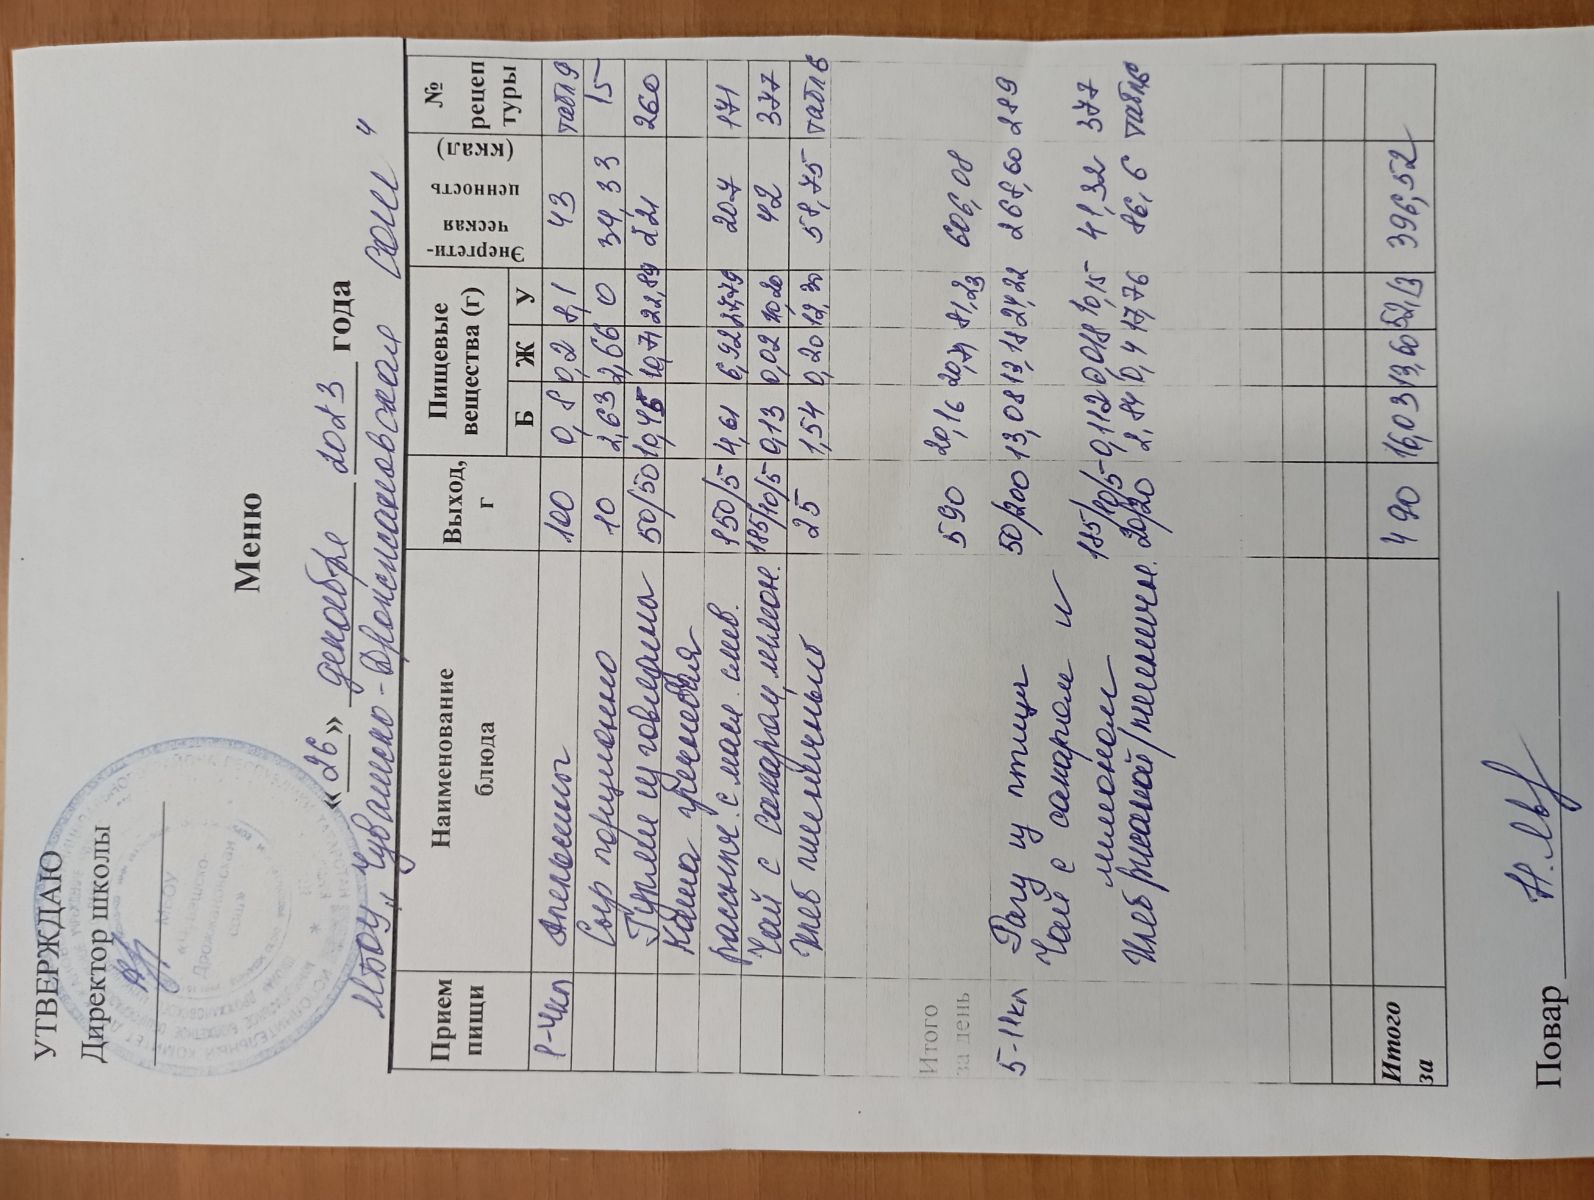 УТВЕРЖДАЮ
Директор школы
МБОУ
Меню
«26» декабря 2023 года
МБОУ "Чувашско-Дрожжановская СОШ"
Прием пищи Наименование блюда Выход, г Пищевые вещества (г) Энергети-ческая ценность (ккал) № рецеп туры
Б Ж У
Апельсины 100 0,8 0,2 8,1 43 табл 9
Сыр порционно 10 2,63 2,66 0 34,33 15
Гуляш из говядины 50/50 10,45 10,71 22,89 221 260
Каша гречневая
рассыпч. с масл. слив. 150/5 4,61 6,92 207 171
Чай с сахаром лимон. 185/10/5 0,13 0,02 10,20 42 377
Хлеб пшеничный 25 1,54 0,20 12,30 58,75 табл 6
Итого за день 590 20,16 20,71 81,23 606,08
5-11кл Рагу из птицы 50/200 13,08 13,18 24,22 268,60 289
Чай с сахаром и
лимоном 185/10/5 0,112 0,018 10,15 41,32 377
Хлеб ржаной/пшеничн. 20/20 2,84 0,4 17,76 86,6 табл6
Итого за 490 16,03 13,60 52,13 396,52
Повар